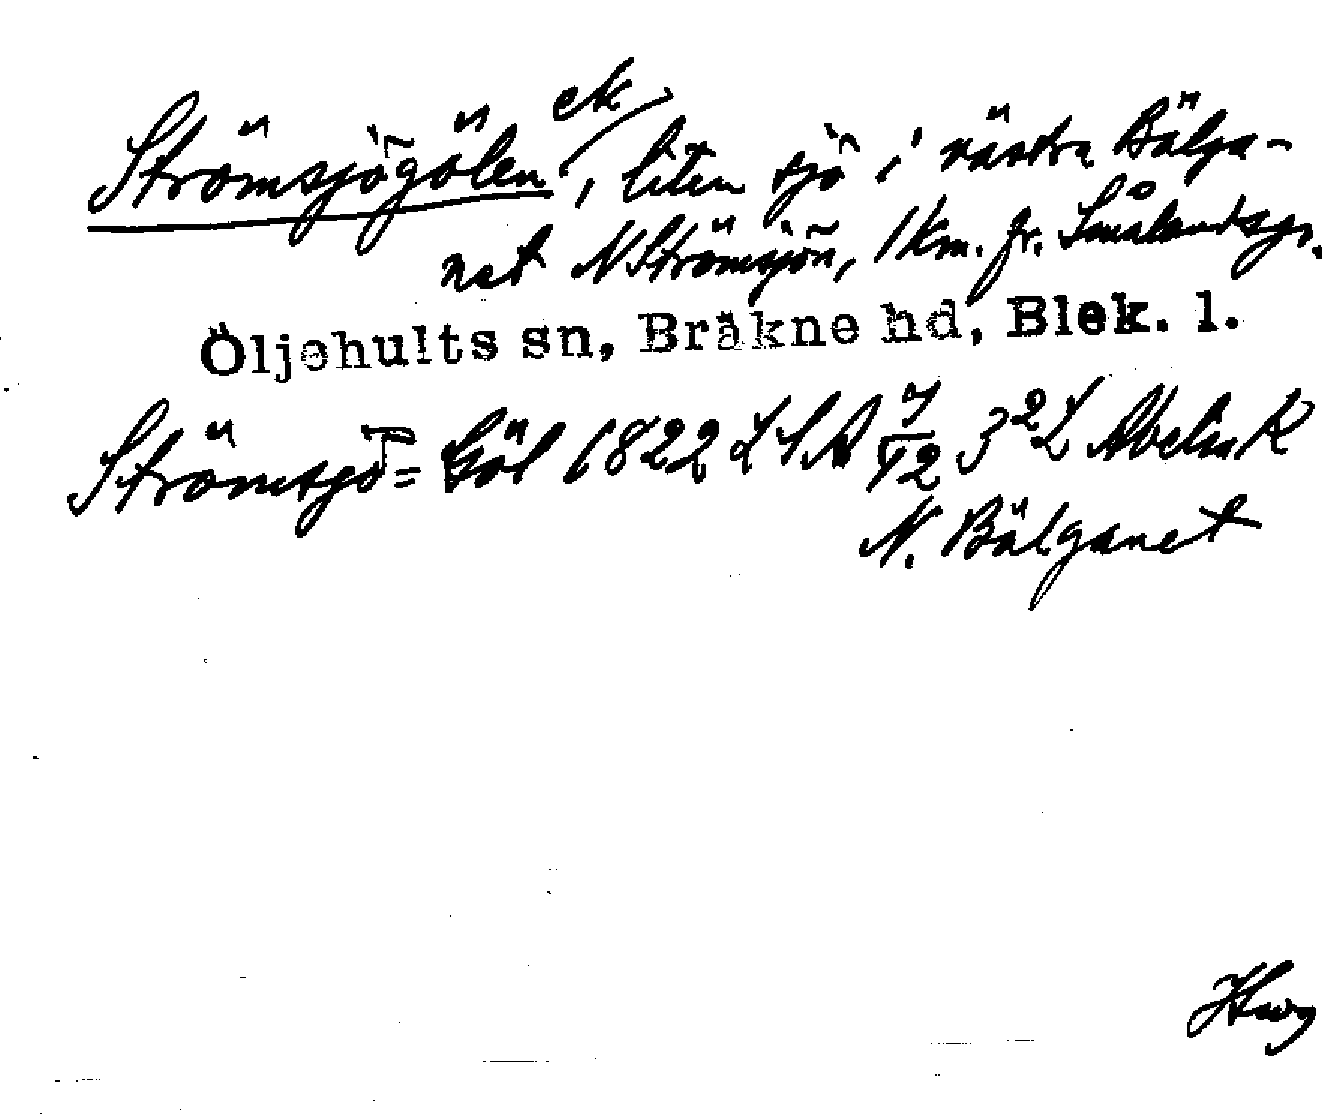 Strömsjögölen ek, liten sjö i västra Bälga-
net N Strömsjön, 1 km. fr. Smålandsgr.
Öljehults sn, Bräkne hd, Blek. l.
Strömsjö= Göl 1822 LSA 7/12 3² L
N. Bälganet